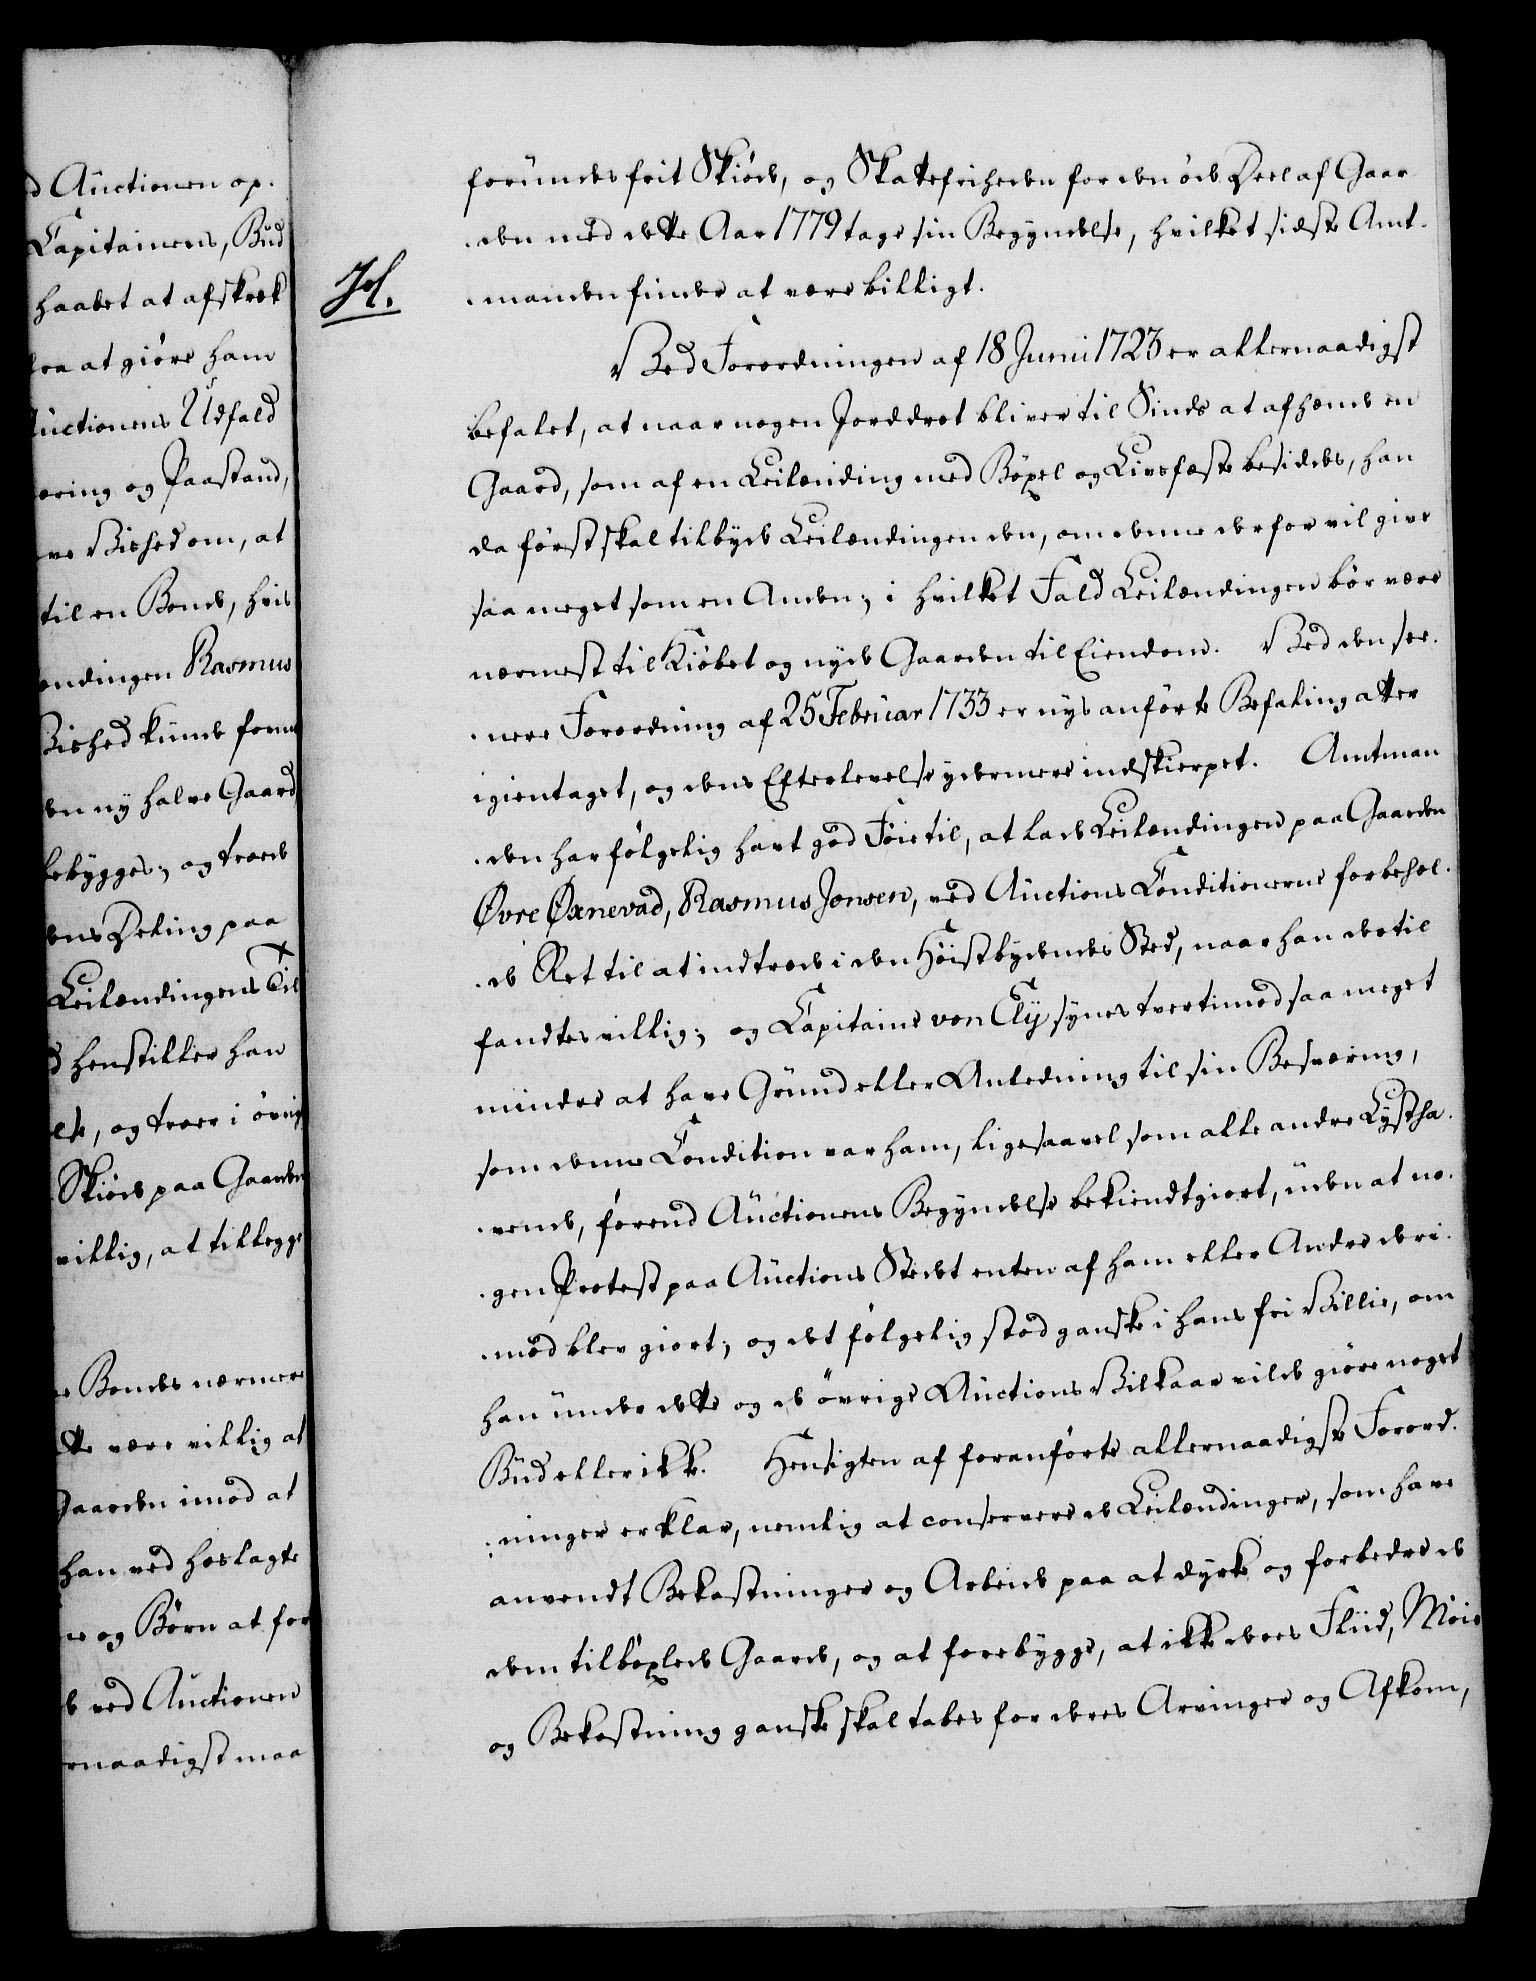 d Auctionen op-
Capitainens, Bud
haabet at afskræk
lea at giøre ham
Auctionens Udfald
æring og Paastand,
ve Vished om, at
til en Bonde, hvis
ændingen Rasmus
Vished kunde forne
den ny halve Gaard
bebygges; og træde
dens Deling paa
Leilændingens Til
d henstiller han
else, og troer i øvrig
Skiøde paa Gaarden
villig, at tillegge
e Bondes nærmere
tte være villig at
Gaarden imod at
han ved hoslagte
ne og Børn at for
b ved Auctionen
rnaadigst maa
forundes frit Skiøde, og Skattefriheden for den øde Deel af Gaar-
-den med dette Aar 1779 tage sin Begyndelse, hvilket sidste Amt-
-manden finder at være billigt.
Ved Forordningen af 18 Junii 1723 er allernaadigst
befalet, at naar nogen Jorddrot bliver til Sinds at afhænde en
Gaard, som af en Leilænding med Bøxel og Livsfæste besiddes, han
da først skal tilbyde Leilændingen den, om denne derfor vil give
saa meget som en Anden; i hvilket Fald Leilændingen bør være
nærmest til Kiøbet og nyde Gaarden til Eiendom. Ved den see-
-nere Forordning af 25 Februar 1733 er nys anførte Befaling atter
igientaget, og dens Efterlevelse ydermere indskierpet. Amtman
-den har følgelig havt god Føie til, at lade Leilændingen paa Gaarden
Øvre Øxnevad, Rasmus Jonsen, ved Auctions Conditionerne forbehol-
-de Ret til at indtræde i den Høistbydendes Sted, naar han dertil
fandtes villig; og Capitaine von Ely synes tvertimod saa meget
mindre at have Grund eller Anledning til sin Besværing,
som denne Condition var ham, ligesaavel som alle andre Lystha-
-vende, førend Auctionens Begyndelse bekiendtgiort, uden at no-
-gen Protest paa Auctions Stedet enten af ham eller Andre deri-
-mod blev giort; og det følgelig stod ganske i hans fri Villie, om
han under dette og de øvrige Auctions Vilkaar vilde giøre noget
Bud eller ikke. Hensigten af foranførte allernaadigste Forord-
-ninger er klar, nemlig at conservere de Leilændinger, som have
anvendt Bekostninger og Arbeide paa at dyrke og forbedre de
dem tilbøxlede Gaarde, og at forebygge, at ikke deres Fliid, Møie
og Bekostning ganske skal tabes for deres Arvinger og Afkom,